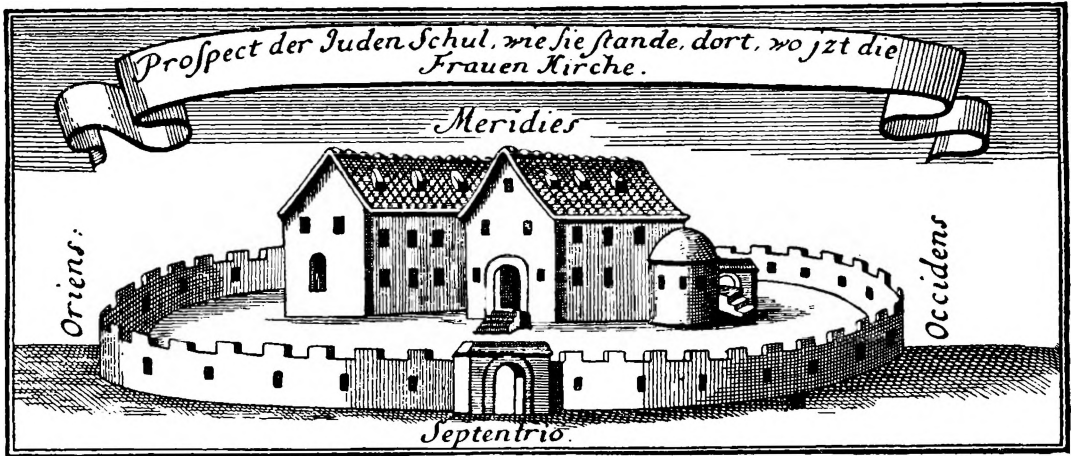 Proſpect der Juden Schul, wie ſie ſtande, dort, wo jzt die
Frauen Kirche.
Meridies
Oriens:
Occidens
Septentrio.